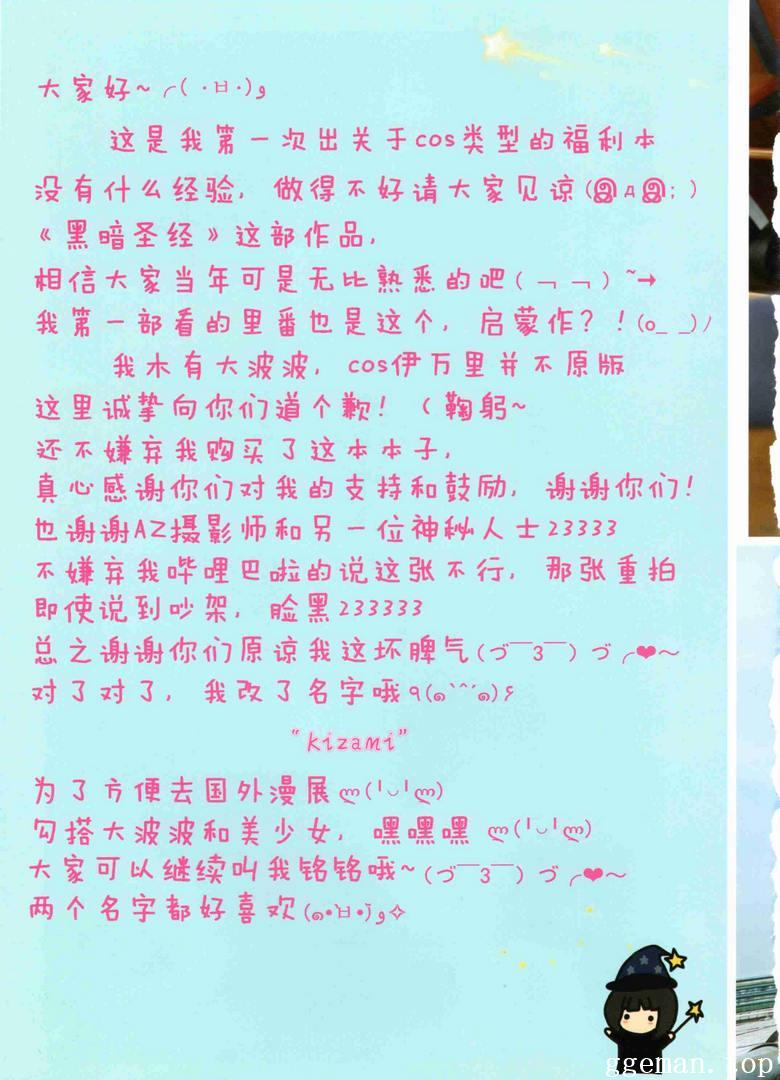 大家好~╭( ･ㅂ･)و
这是我第一次出关于cos类型的福利本
没有什么经验，做得不好请大家见谅(இдஇ; )
《黑暗圣经》这部作品，
相信大家当年可是无比熟悉的吧( ﹁ ﹁ ) ~→
我第一部看的里番也是这个，启蒙作？！(o_ _)ﾉ
我木有大波波，cos伊万里并不原版
这里诚挚向你们道个歉！（鞠躬~
还不嫌弃我购买了这本本子，
真心感谢你们对我的支持和鼓励，谢谢你们！
也谢谢AZ摄影师和另一位神秘人士23333
不嫌弃我哔哩巴啦的说这张不行，那张重拍
即使说到吵架，脸黑233333
总之谢谢你们原谅我这坏脾气(づ￣3￣)づ╭❤～
对了对了，我改了名字哦٩(๑`^´๑)۶
“kizami”
为了方便去国外漫展ლ(╹◡╹ლ)
勾搭大波波和美少女，嘿嘿嘿 ლ(╹◡╹ლ)
大家可以继续叫我铭铭哦~(づ￣3￣)づ╭❤～
两个名字都好喜欢(๑•̀ㅂ•́)و✧
ggeman.top